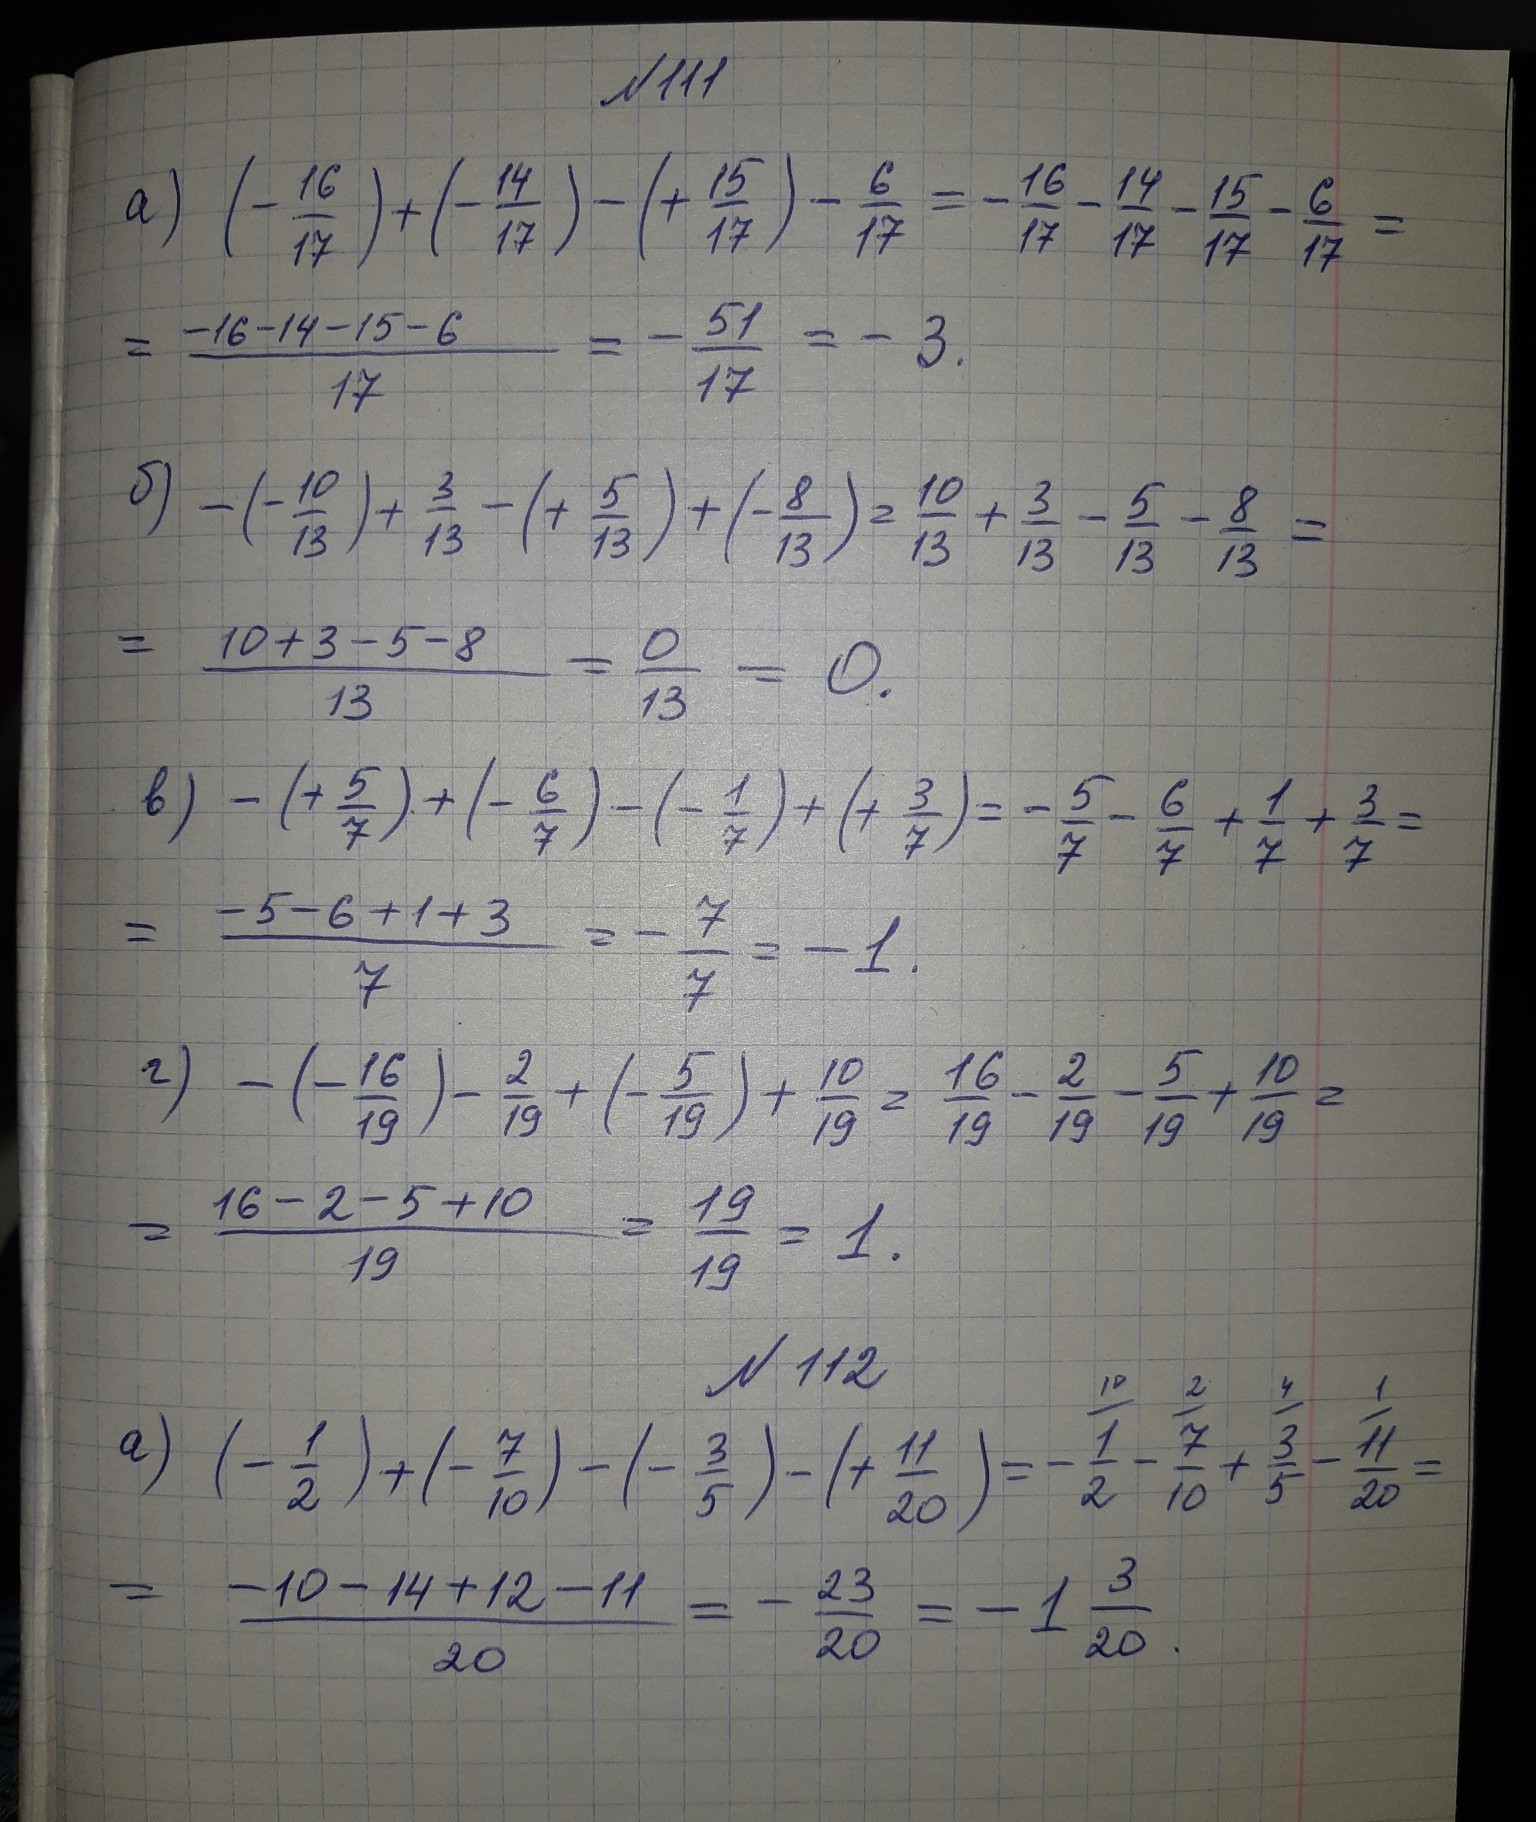 №111
а) (-16/17)+(-14/17)-(+15/17)-6/17=-16/17-14/17-15/17-6/17=
=(-16-14-15-6)/17=-51/17=-3.
б) -(-10/13)+3/13-(+5/13)+(-8/13)=10/13+3/13-5/13-8/13=
=(10+3-5-8)/13=0/13=0.
в) -(+5/7)+(-6/7)-(-1/7)+(+3/7)=-5/7-6/7+1/7+3/7=
=(-5-6+1+3)/7=-7/7=-1.
г) -(-16/19)-2/19+(-5/19)+10/19=16/19-2/19-5/19+10/19=
=(16-2-5+10)/19=19/19=1.
№112
10/ 2/ 4/ 1/
а) (-1/2)+(-7/10)-(-3/5)-(+11/20)=-1/2-7/10+3/5-11/20=
=(-10-14+12-11)/20=-23/20=-1 3/20.